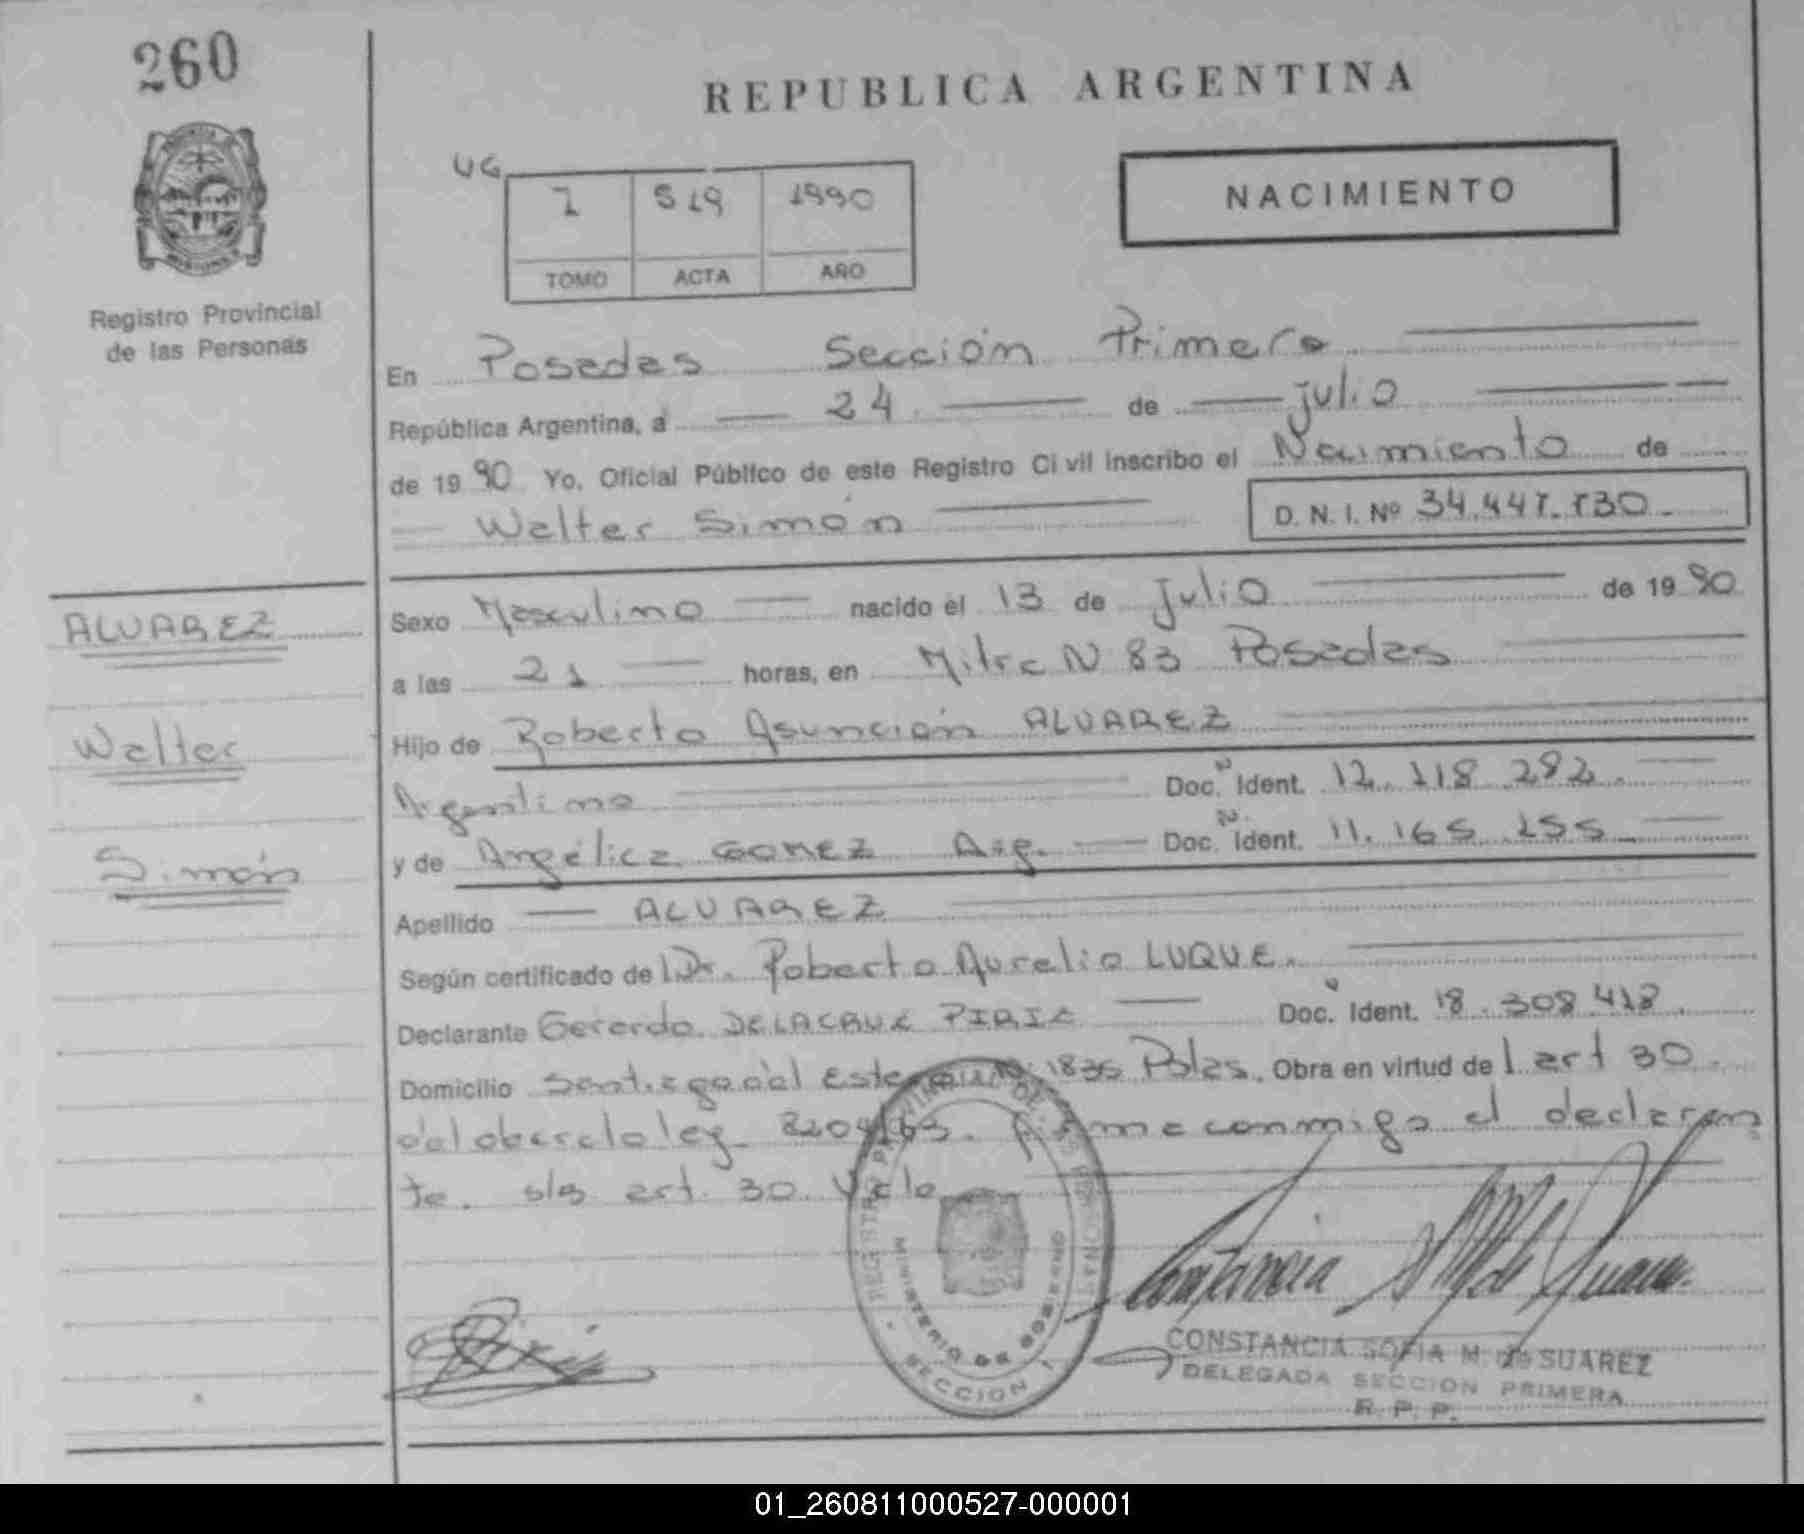 260
REPUBLICA ARGENTINA
UG
1 519 1990
TOMO ACTA AÑO
NACIMIENTO
Registro Provincial
de las Personas
En Posadas Sección Primera
República Argentina, a 24 de julio
de 1990 Yo, Oficial Público de este Registro Civil inscribo el Nacimiento de
Walter Simón
D. N. I. Nº 34.447.
ALVAREZ
Walter
Simón
Sexo Masculino nacido el 13 de Julio de 1990
a las 21 horas, en Mitre N 83 Posadas
Hijo de Roberto Asunción ALVAREZ
Argentino Doc. N Ident. 12.118.292.
y de Angélica GOMEZ Arg. Doc. N. Ident. 11.165.255
Apellido ALVAREZ
Según certificado del Dr. Roberto Aurelio LUQUE.
Declarante Gerardo DELACRUZ PIRIZ Doc. Ident. 18.308.418.
Domicilio Santiago del Estero N 1835 Pdas. Obra en virtud del art 30
del decreto ley 8204/63. Firma conmigo el declaran
te. s/b art. 30. Vale
REGISTRO PROVINCIAL DE LAS PERSONAS
MINISTERIO DE GOBIERNO
SECCION 1
CONSTANCIA SOFIA M. de SUAREZ
DELEGADA SECCION PRIMERA
R. P. P.
01_260811000527-000001